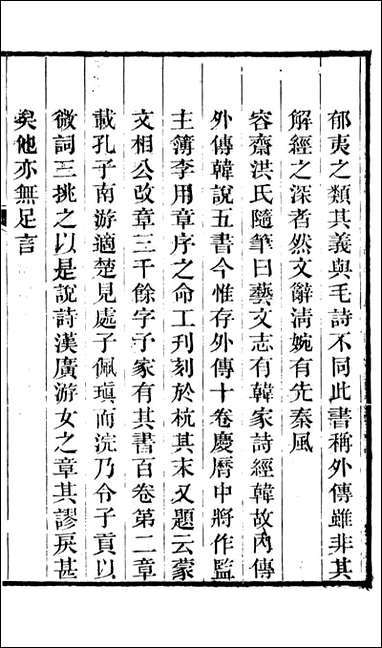 郁夷之類其義與毛詩不同此書稱外傳雖非其
解經之深者然文辭清婉有先秦風
容齋洪氏隨筆曰藝文志有韓家詩經韓故內傳
外傳韓說五書今惟存外傳十卷慶曆中將作監
主簿李用章序之命工刊刻於杭其末又題云蒙
文相公改章三千餘字子家有其書百卷第二章
載孔子南游適楚見處子佩瑱而浣乃令子貢以
微詞三挑之以是說詩漢廣游女之章其謬戾甚
矣他亦無足言